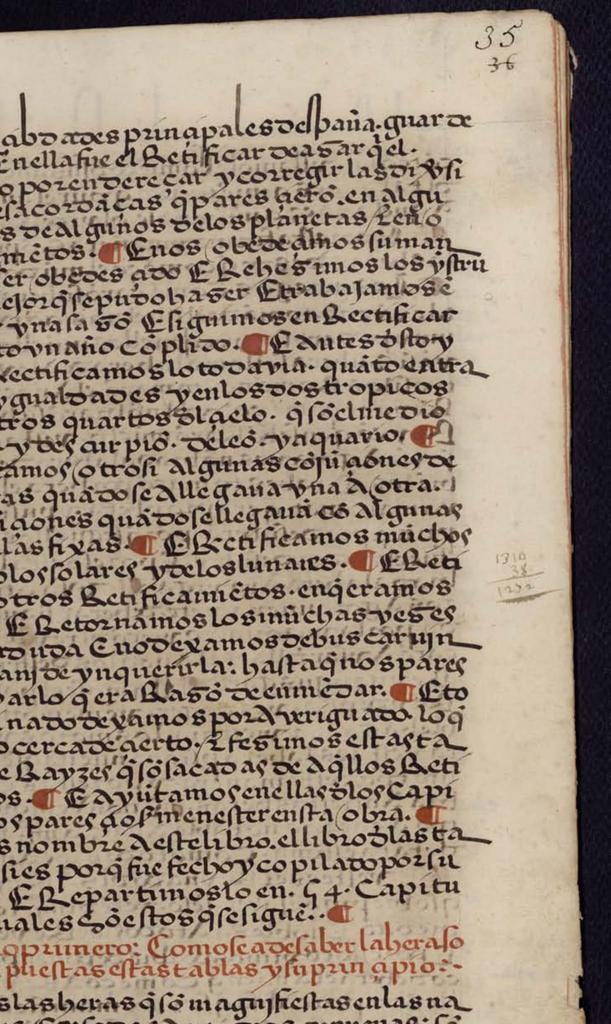 35
36
abdades prinçipales despaña. guar de
E nella fue el Retificar de açarq̃ el.
o por endereçar y corregir las diũsi
sacordãças q̃ pares çierõ. en algu
s de Algunos de los planetas ⁊ en o
miẽtos. ¶ E nos obedeçimos su man
er obedesçido E Rehezimos los ystru
ejor q̃ se pudo hazer E trabajamos ẽ
yna sazõ E siguimos en Rectificar
to vn año cõplido. ¶ E Antes dsto y
Rectificamos lo todavia. quãto entra
ygualdades y en los dos tropicos
tros quartos dl çielo. q̃ sõ el medio
y des curpio. de leõ. y aquario. ¶
amos otrosi Algunas cõjũçiones de
as quãdo se Allegaua vna A otra.
çiones quãdo se llegauã cõ Algunas
las fixas. ¶ E Retificamos muchos
los solares y de los lunares. ¶ E Reti
otros Retificamiẽtos. en q̃ eramos
E Retornamos los muchas vezes
duda E no dexamos de buscar nin
ani de ynquerirla: hasta q̃ nos pares
arlo q̃ era Razõ de enmẽdar. ¶ E to
nado dexamos por Averiguado. lo q̃
o cerca de çierto. ⁊ fezimos estas ta
e Rayzes q̃ sõ sacadas de Aq̃llos Reti
os. ¶ E Ayũtamos en ellas dlos Capi
os paresçio s menester en sta obra. ¶
s nombre A este libro. el libro dlas ta
sies porq̃ fue fecho y copilado por su
E Repartimoslo en. 54. Capitu
uales sõ estos q̃ se siguẽ. ¶
o primero: Como se a de saber la hera so
puestas estas tablas y su prinçipio:-
1310
38
1272
s las heras q̃ sõ magnifiestas en las na